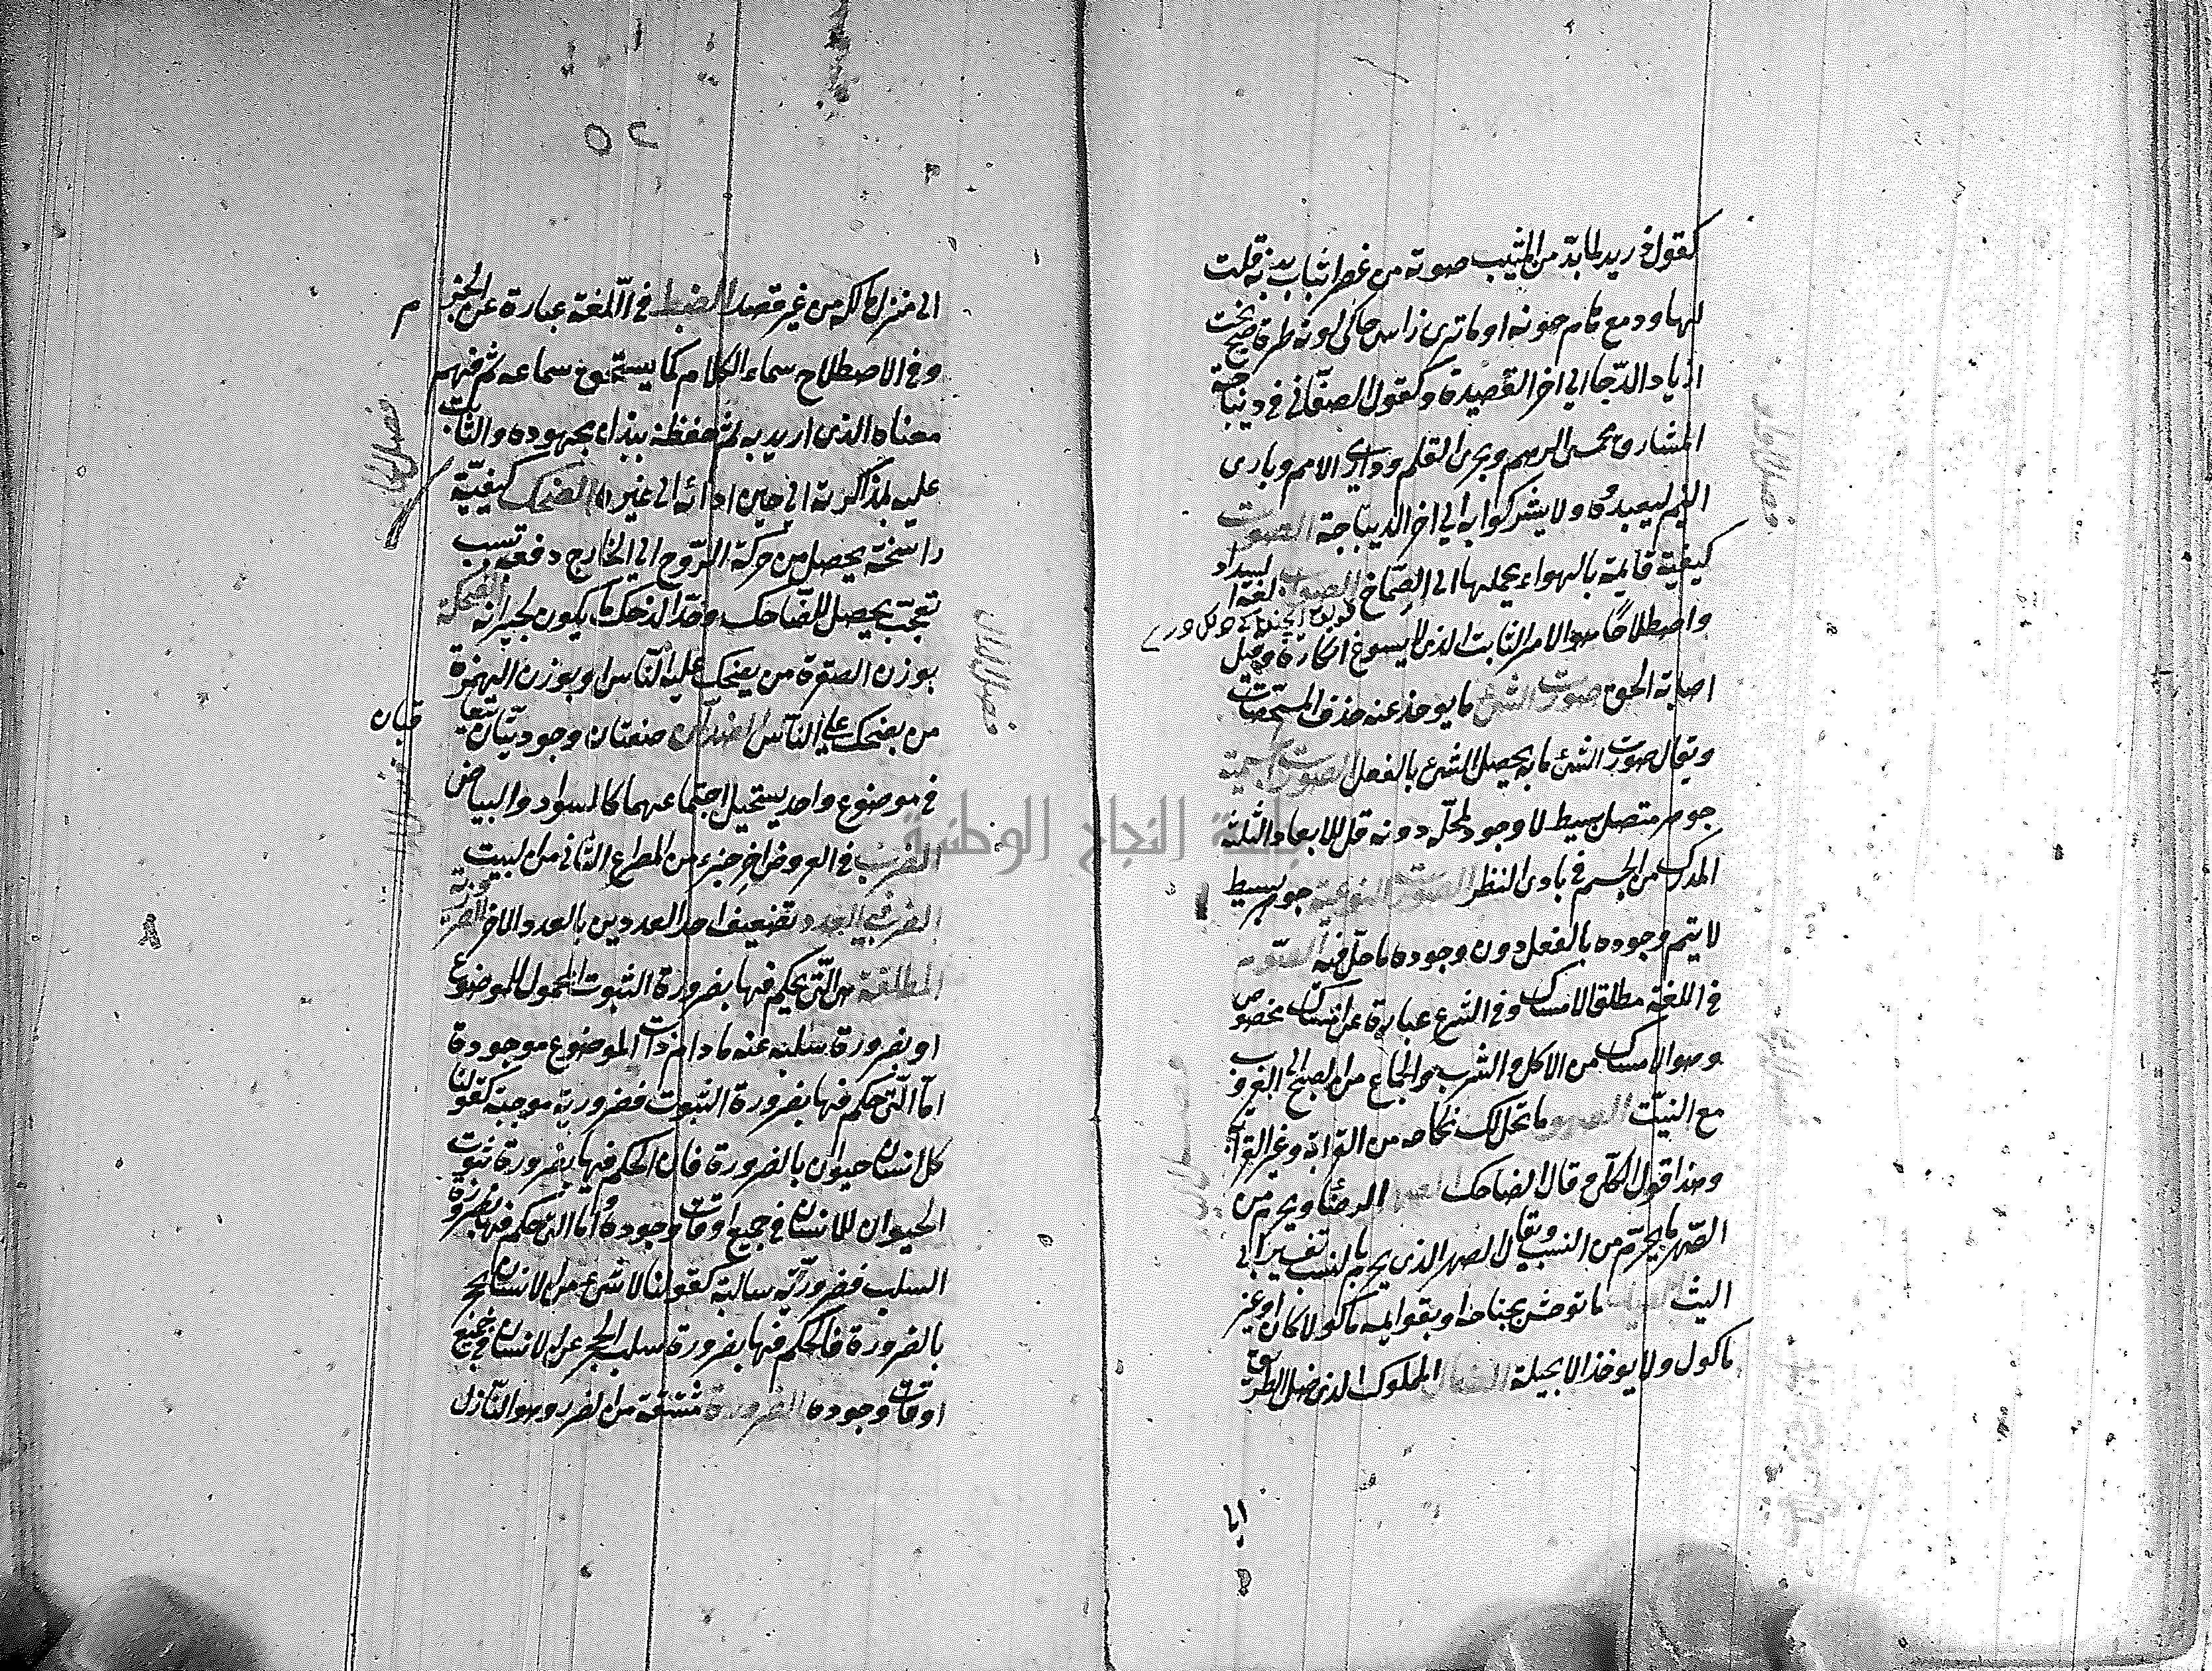 كقول دريد لما بدّ من المشيب صوته من غصر اثباب بدنه قلت
لها ودمع
اذياد الدّجا الي اخر القصيدة وكقول الصغانى فى ديباجة
المشارق محمى الرمم ومجرى القلم وذارى الامم وبارى
النسم ليعبدوه ولا يشركوا به الي اخر الديباجة الصوت
كيفية قايمة بالهواء يحملها الى الصماخ الصواب لغة السداد
واصطلاحا هو الامر الثابت الذى لا يسوغ انكاره وقيل
اصابة الحق صورت الشئ ما يوخذ عنه حذف المشخصات
ويقال صورت الشئ ما به يحصل الشئ بالفعل الصورت الجسمية
جوهر متصل بسيط لا وجود لمحلّه دونه قابل للابعاد الثلثة
المدرك من الجسم فى بادى النظر الصورت النوعية جوهر بسيط
لا يتم وجوده بالفعل دون وجوده ما حلّ فيه الصّوم
فى اللغة مطلق الامساك وفى الشرع عبارة عن امساك مخصوص
وهو الامساك من الاكل والشرب والجماع من الصبح الى الغروب
مع النيّت الصهر ما تحل لك نكاحه من القرابة وغير القرابة
وهذا قول الكلبى وقال الضحاك الصهر الرضاع ويحرم من
الصّهر ما يحرّم من النسب ويقال الصهر الذى يحرم بالنسب تفسير ابى
اليث الصيد ما توحّش بجناحه او بقوايمه ماكولا كان او غير
ماكول ولا يوخذ الا بحيلة الضال المملوك الذى ضل الطريق
ايا
٥٢
الى منزل مالكه من غير قصد الضبط فى اللّغة عبارة عن الجزم
وفى الاصطلاح سماء الكلام كما يستحق سماعه ثم فهم
معناه الذى اريد به ثم حفظه ببذل مجهوده والثبات
عليه بمذاكرته الى حين ادائه الى غيره الضحك كيفيّة
راسخة يحصل من حركة الرّوح الي الخارج دفعة بسبب
تعجّب يحصل للضاحك وحدّ الضحك ما يكون لجيرانه الضحكة
بوزن الصّفرة من يضحك عليه النّاس او بوزن الهمزة
من يضحك على النّاس الضدان صفتان وجوديّتان يتعاقبان
فى موضوع واحد يستحيل اجتماعهما كالسواد والبياض
الضرب فى العروض اخر جزء من المصراع الثّانى من البيت
الضرب فى العدد تضعيف احد العددين بالعدد الاخر الضرورية
المطلقة هى الّتى يحكم فيها بضرورة الثبوت المحمول للموضوع
او بضرورة سلبه عنه ما دام ذات الموضوع موجودة
امّا الّتى حكم فيها بضرورة الثبوت فضرورية موجبة كقولنا
كل انسان حيوان بالضرورة فان الحكم فيها بضرورة ثبوت
الحيوان للانسان فى جميع اوقات وجوده وامّا الّتى حكم فيها بضرورة
السلب فضروريّة سالبة كقولنا لا شئ من الانسان بحجر
بالضرورة فالحكم فيها بضرورة سلب الحجر عن الانسان فى جميع
اوقات وجوده الضرورة مشتقة من الضرر وهو النّازل
جامعة النجاح الوطنية